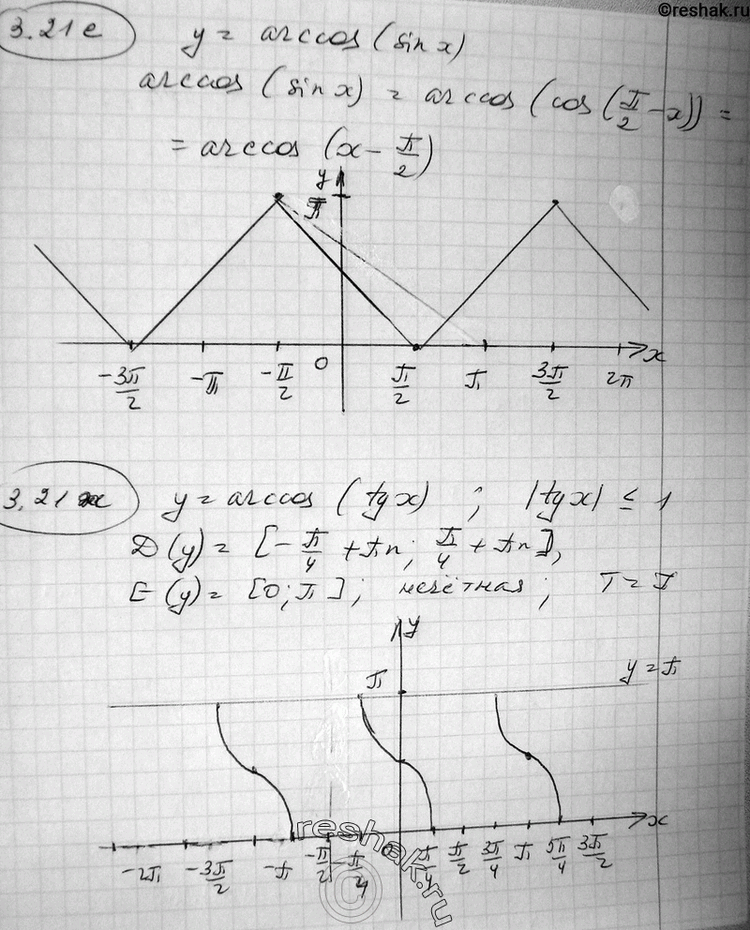 ©reshak.ru
3.21 е
y = arccos (sin x)
arccos (sin x) = arccos (cos (π/2 - x)) =
= arccos (x - π/2)
y
π
-3π/2 -π -π/2 0 π/2 π 3π/2 2π x
3.21 ж
y = arccos (tg x) ; |tg x| ≤ 1
D(y) = [-π/4 + πn; π/4 + πn],
E(y) = [0; π]; нечётная; T = π
y
π
y = π
-2π -3π/2 -π -π/2 -π/4 0 π/4 π/2 3π/4 π 5π/4 3π/2 x
reshak.ru
©